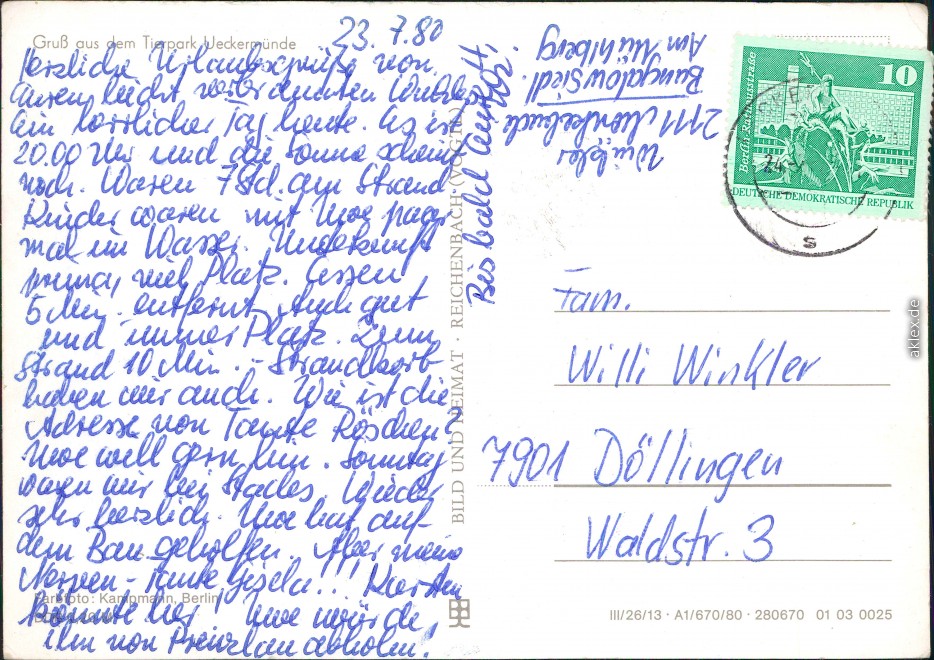 Gruß aus dem Tierpark Ueckermünde
23.7.80
Herzliche Urlaubsgrüße von
Euren leicht verbrannten
Ein herrlicher Tag heute. Es ist
20.00 Uhr und die Sonne scheint
noch. Waren 7 Std. am Strand
Kinder waren mit Uwe paar
mal im Wasser. Unterkunft
prima, viel Platz. Essen
5 Min. entfernt. Auch gut
und immer Platz. Zum
Strand 10 Min. - Strandkorb
haben wir auch. Wie ist die
Adresse von Tante Röschen?
Uwe will gern hin. Sonntag
waren wir bei Stades. Wieder
sehr herzlich. Uwe hat auf
dem Bau geholfen. Aber meine
Nerven - Tante Gisela!!!
könnte her! Uwe würde
ihn von Prenzlau abholen.
Farbfoto: Kampmann, Berlin
Bis bald
BILD UND HEIMAT · REICHENBACH (VOGTL)
2111 Mönkebude
Bungalowsiedl.
Am Mühlberg
10
DEUTSCHE DEMOKRATISCHE REPUBLIK
24.
s
Fam.
Willi Winkler
7901 Döllingen
Waldstr. 3
III/26/13 · A1/670/80 · 280670 01 03 0025
aklex.de